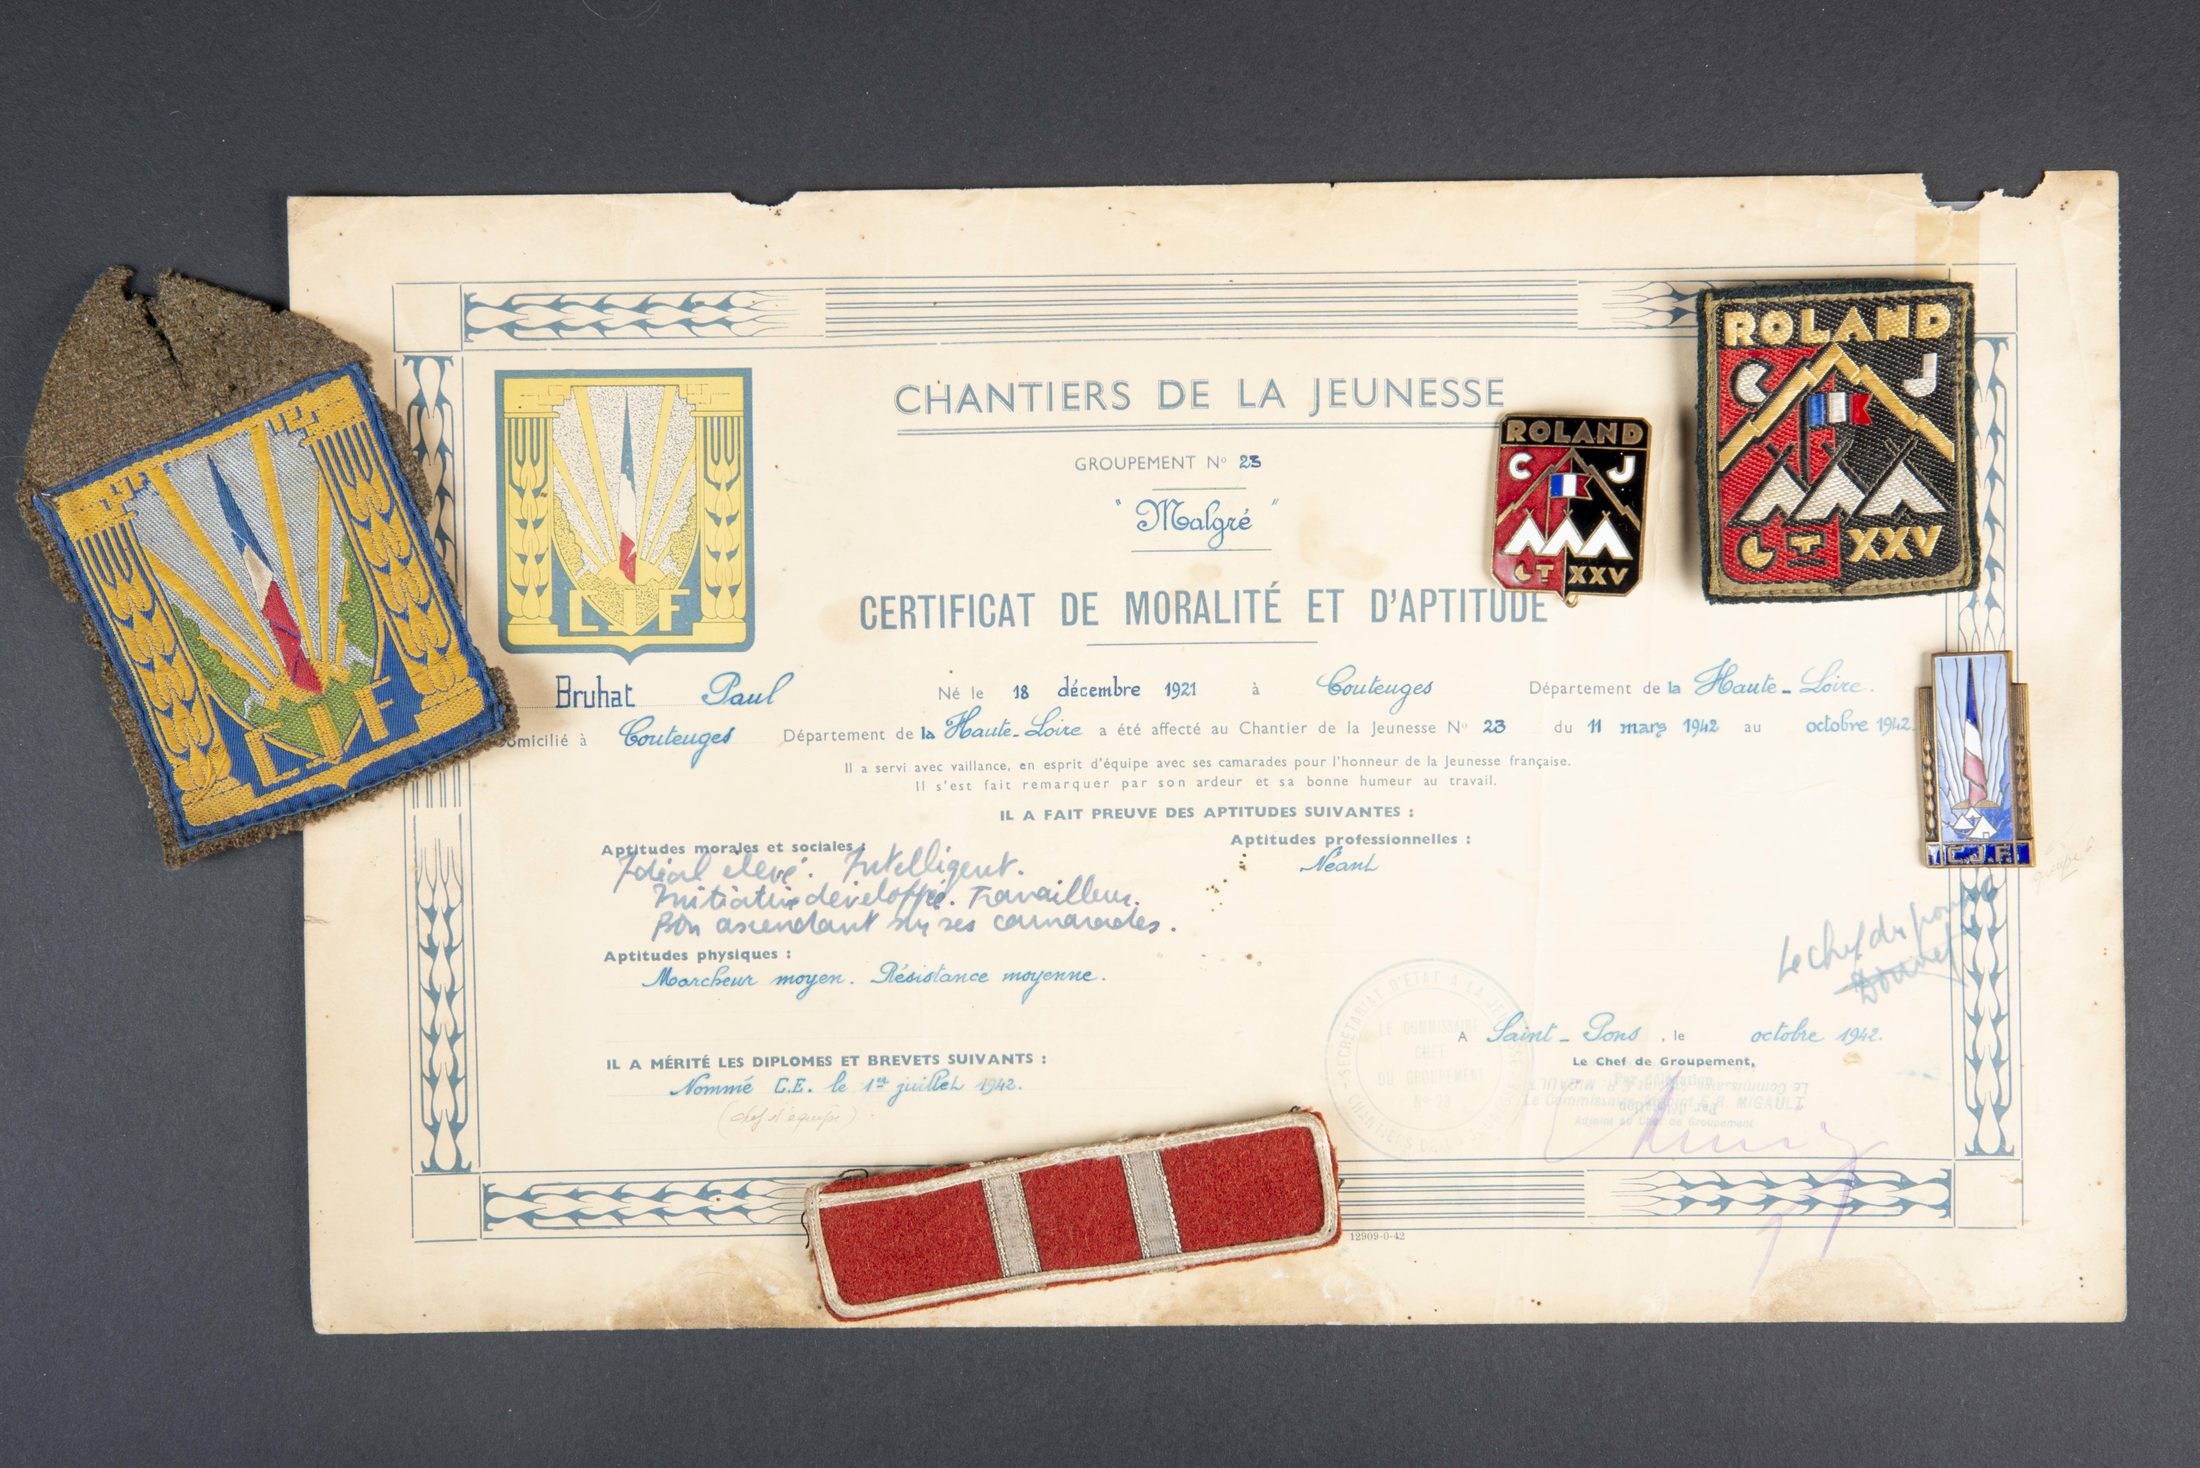 CHANTIERS DE LA JEUNESSE
GROUPEMENT No 23
"Malgré"
CERTIFICAT DE MORALITÉ ET D'APTITUDE
CJF
CJF
ROLAND
C J
GT XXV
ROLAND
C J
GT XXV
C.J.F.
Bruhat Paul Né le 18 décembre 1921 à Couteuges Département de la Haute-Loire.
omicilié à Couteuges Département de la Haute-Loire a été affecté au Chantier de la Jeunesse No 23 du 11 mars 1942 au octobre 1942.
Il a servi avec vaillance, en esprit d'équipe avec ses camarades pour l'honneur de la Jeunesse française.
Il s'est fait remarquer par son ardeur et sa bonne humeur au travail.
IL A FAIT PREUVE DES APTITUDES SUIVANTES :
Aptitudes morales et sociales :
Idéal élevé. Intelligent.
Initiative développée. Travailleur.
Bon ascendant sur ses camarades.
Aptitudes professionnelles :
Néant
Aptitudes physiques :
Marcheur moyen. Résistance moyenne.
équipe 6
Le chef du
IL A MÉRITÉ LES DIPLOMES ET BREVETS SUIVANTS :
Nommé C.E. le 1er juillet 1942.
(chef d'équipe)
SECRÉTARIAT D'ÉTAT A LA JEUNESSE
LE COMMISSAIRE
CHEF
DU GROUPEMENT
No 23
CHANTIERS DE LA
A Saint-Pons, le octobre 1942.
Le Chef de Groupement,
Par délégation
Le Commissaire Adjoint E.R. MIGAULT
Adjoint au Chef de Groupement
12909-0-42